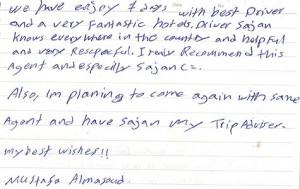 we have enjoy 7 days with best Driver
and a very Fantastic hotels. Driver Sajan
knows everywhere in the country and helpful
and very Rescpecful. I truly Recommend this
Agent and especilly Sajan (=.
Also, Im planing to come again with same
Agent and have Sajan my Trip Adviser.
my best wishes!!
Mustafa Almasoud.